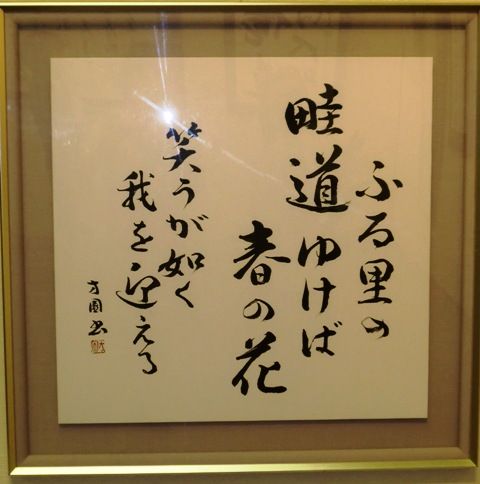 ふる里の
畦道ゆけば
春の花
笑うが如く
我を迎える
方圓書